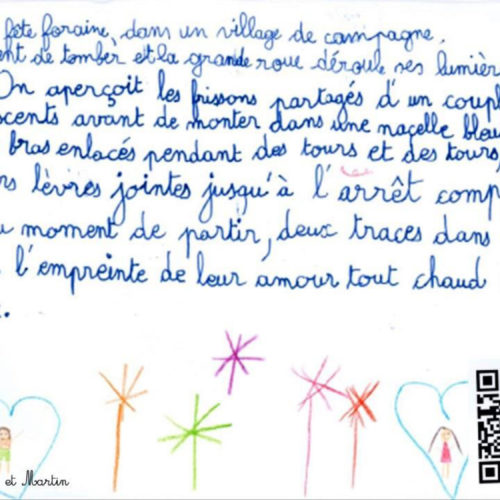 fête foraine, dans un village de campagne.
de tomber et la grande roue déroule ses
On aperçoit les frissons partagés d'un
avant de monter dans une nacelle
bras enlacés pendant des tours et des tours,
lèvres jointes jusqu'à l'arrêt
moment de partir, deux traces dans
l'empreinte de leur amour tout chaud
et Martin